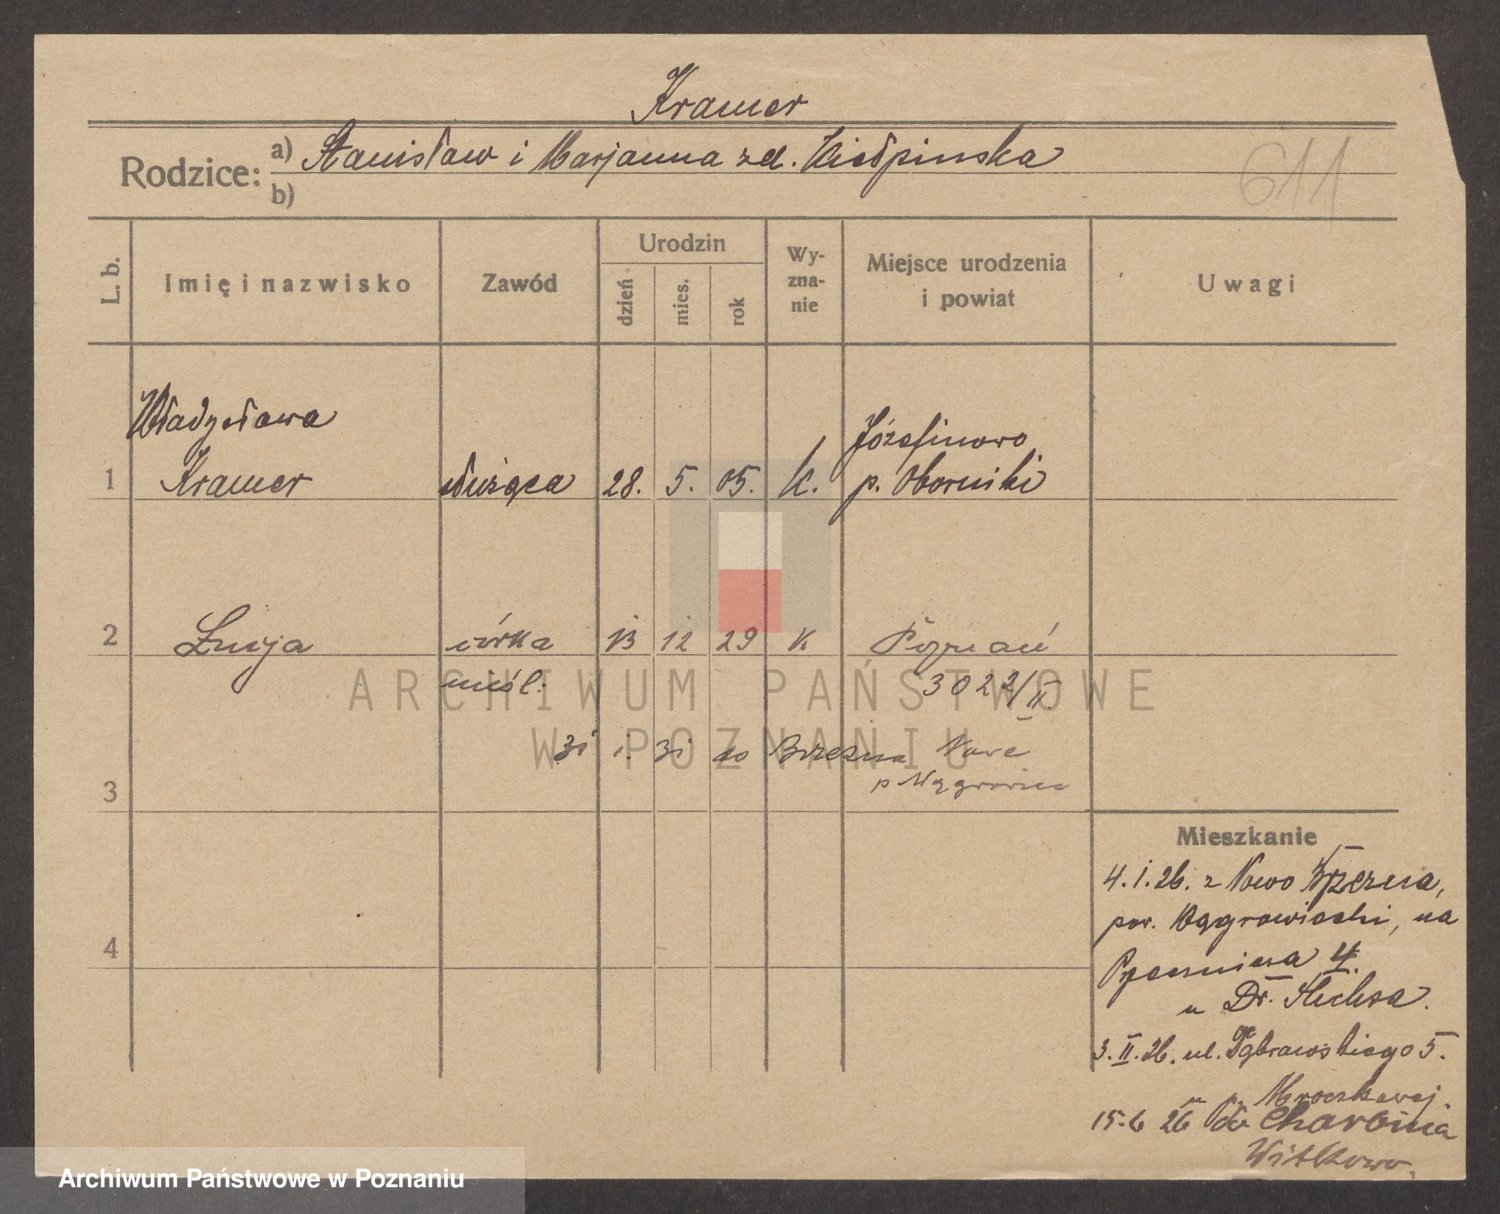 Kramer
Rodzice: a) Stanisław i Marjanna zd. Kiełpinska
b)
611
L. b.
Imię i nazwisko
Zawód
Urodzin
dzień
mies.
rok
Wy-
zna-
nie
Miejsce urodzenia
i powiat
Uwagi
Władysława
1 Kramer służąca 28. 5. 05. k. Józefinowo
p. Oborniki
2 Łucja córka 13 12 29 K Poznań
nieśl. 3022/II
31 1. 31 do Brzezna Nowe
p Wągrowiec
3
4
Mieszkanie
4.1.26. z Nowo Brzezna,
pow. Wągrowiecki, na
4.
u Dr.
3.II.26. ul. Dąbrowskiego 5.
u p. Mroczkowej.
15.6 26 do
Witkowo.
ARCHIWUM PAŃSTWOWE
W POZNANIU
Archiwum Państwowe w Poznaniu